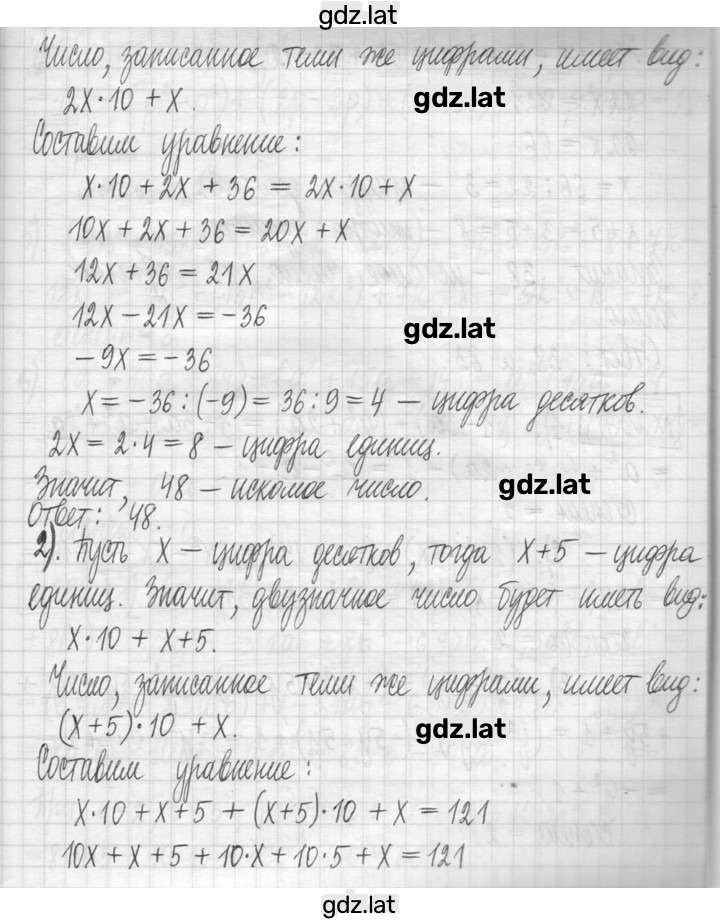 gdz.lat
Число, записанное теми же цифрами, имеет вид:
2x·10 + x.
gdz.lat
Составим уравнение:
x·10 + 2x + 36 = 2x·10 + x
10x + 2x + 36 = 20x + x
12x + 36 = 21x
12x − 21x = −36
gdz.lat
−9x = −36
x = −36 : (−9) = 36 : 9 = 4 — цифра десятков.
2x = 2·4 = 8 — цифра единиц.
Значит, 48 — искомое число.
gdz.lat
Ответ: 48.
2). Пусть x — цифра десятков, тогда x+5 — цифра
единиц. Значит, двузначное число будет иметь вид:
x·10 + x+5.
Число, записанное теми же цифрами, имеет вид:
(x+5)·10 + x.
gdz.lat
Составим уравнение:
x·10 + x + 5 + (x+5)·10 + x = 121
10x + x + 5 + 10·x + 10·5 + x = 121
gdz.lat